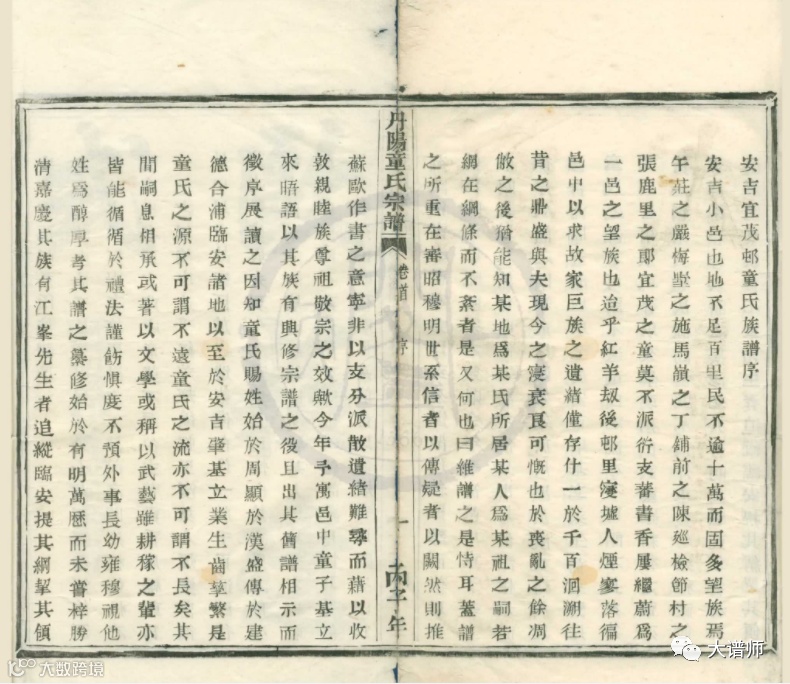 安吉宜茂邨童氏族譜序
安吉小邑也地不足百里民不逾十萬而固多望族焉
午莊之嚴梅墅之施馬嶺之丁鋪前之陳巡檢節村之
張鹿里之耶宜茂之童莫不派衍支蕃書香屢繼蔚為
一邑之望族也迨乎紅羊刼後邨里邃墟人煙寥落徧
邑中以求故家巨族之遺緒僅存什一於千百洄溯往
昔之鼎盛與夫現今之寖衰良可慨也於喪亂之餘凋
敝之後猶能知某地為某氏所居某人為某祖之嗣若
網在綱條而不紊者是又何也曰維譜之是恃耳蓋譜
之所重在審昭穆明世系信者以傳疑者以闕然則推
丹陽童氏宗譜
卷首
序
一
丙子年
蘇歐作書之意寧非以支分派散遺緒難尋而藉以收
敦親睦族尊祖敬宗之效歟今年予寓邑中童子基立
來晤語以其族有興修宗譜之役且出其舊譜相示而
徵序展讀之因知童氏賜姓始於周顯於漢盛傳於建
德合浦臨安諸地以至於安吉肇基立業生齒蕃繁是
童氏之源不可謂不遠童氏之流亦不可謂不長矣其
間嗣息相承或著以文學或稱以武藝雖耕稼之輩亦
皆能循循於禮法謹飭慎度不預外事長幼雍穆視他
姓為醇厚考其譜之纂修始於有明萬歷而未嘗梓勝
清嘉慶其族有江峯先生者追縱臨安提其網挈其領
大数跨境
大谱师